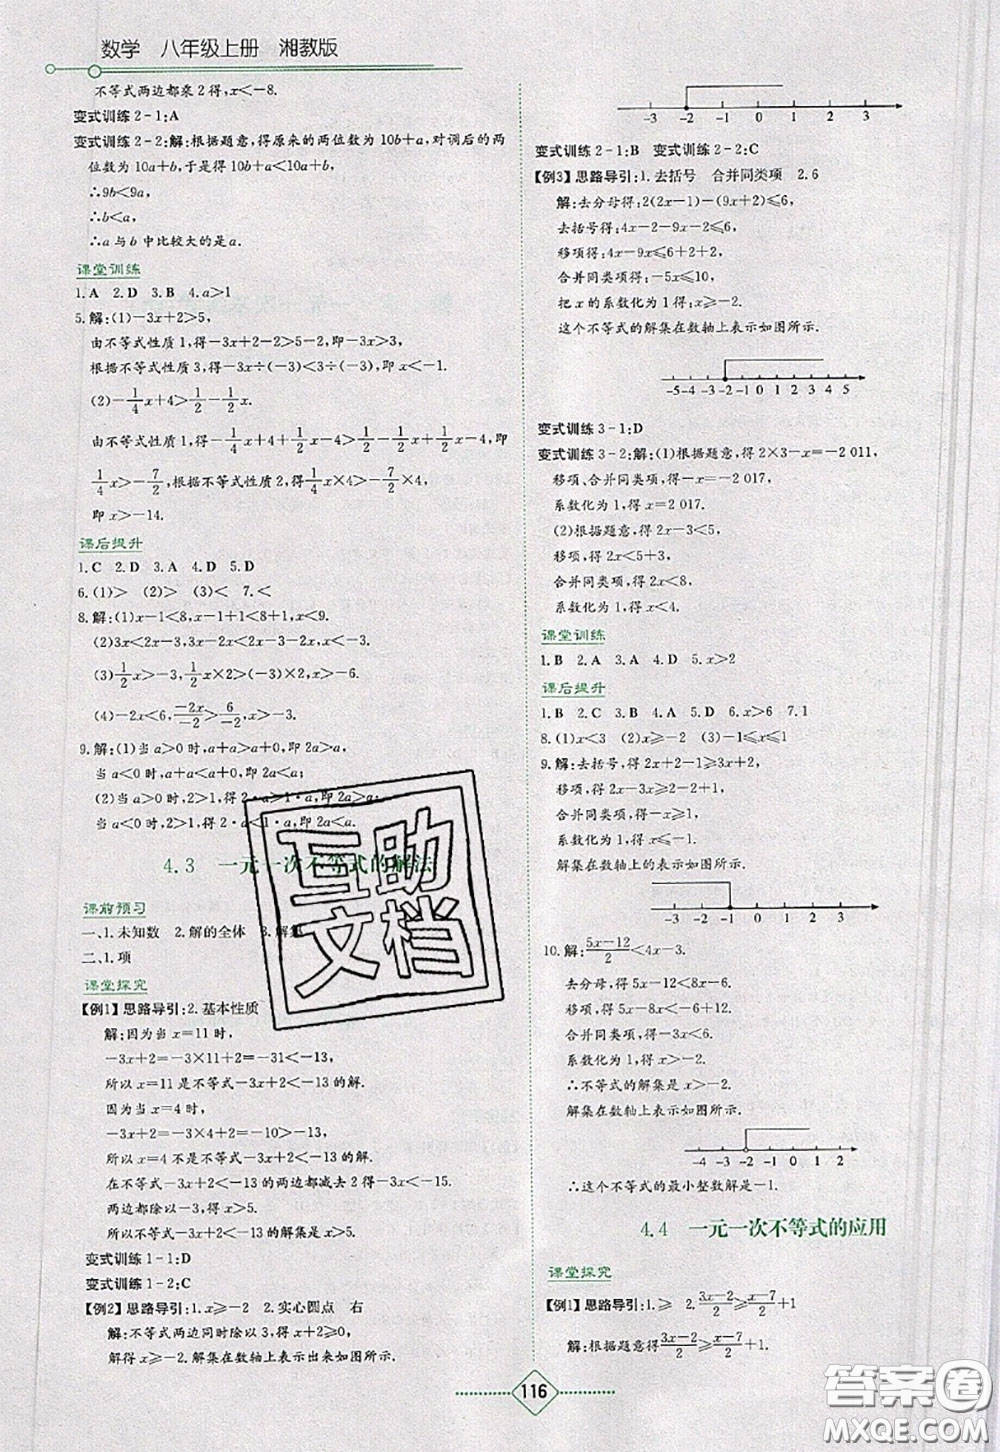 数学 八年级上册 湘教版
不等式两边都乘2得,x<-8.
变式训练2-1:A
变式训练2-2:解:根据题意,得原来的两位数为10b+a,对调后的两
位数为10a+b,于是得10b+a<10a+b,
∴9b<9a,
∴b<a,
∴a与b中比较大的是a.
课堂训练
1.A 2.D 3.B 4.a>1
5.解:(1)-3x+2>5,
由不等式性质1,得-3x+2-2>5-2,即-3x>3.
根据不等式性质3,得-3x÷(-3)<3÷(-3),即x<-1.
(2)-1/4x+4>-1/2x+1/2,
由不等式性质1,得-1/4x+1/2x+4-4>-1/2x+1/2x+1/2-4,即
1/4x>-7/2,根据不等式性质2,得1/4x×4>-7/2×4,
即x>-14.
课后提升
1.C 2.D 3.A 4.D 5.D
6.(1)> (2)> (3)< 7.<
8.解:(1)x-1<8,x-1+1<8+1,x<9.
(2)3x<2x-3,3x-2x<2x-3-2x,x<-3.
(3)1/2x>-3,1/2x×2>(-3)×2,x>-6.
(4)-2x<6,-2x/-2>6/-2,x>-3.
9.解:(1)当a>0时,a+a>a+0,即2a>a;
当a<0时,a+a<a+0,即2a<a;
(2)当a>0时,2>1,得2·a>1·a,即2a>a;
当a<0时,2>1,得2·a<1·a,即2a<a.
4.3 一元一次不等式的解法
课前预习
一、1.未知数 2.解的全体 3.解集
二、1.项
课堂探究
【例1】思路导引:2.基本性质
解:因为当x=11时,
-3x+2=-3×11+2=-31<-13,
所以x=11是不等式-3x+2<-13的解.
因为当x=4时,
-3x+2=-3×4+2=-10>-13,
所以x=4不是不等式-3x+2<-13的解.
在不等式-3x+2<-13的两边都减去2,得-3x<-15,
两边都除以-3,得x>5.
所以不等式-3x+2<-13的解集为x>5.
变式训练1-1:D
变式训练1-2:C
【例2】思路导引:1.x≥-2 2.实心圆点 右
解:不等式两边同时除以3,得x+2≥0,
解得x≥-2.解集在数轴上表示出来如图所示.
-3 -2 -1 0 1 2 3
变式训练2-1:B 变式训练2-2:C
【例3】思路导引:1.去括号 合并同类项 2.6
解:去分母得:2(2x-1)-(9x+2)≤6,
去括号得:4x-2-9x-2≤6,
移项得:4x-9x≤6+2+2,
合并同类项得:-5x≤10,
把x的系数化为1得:x≥-2.
这个不等式的解集在数轴上表示如图所示.
-5-4-3-2-1 0 1 2 3 4 5
变式训练3-1:D
变式训练3-2:解:(1)根据题意,得2×3-x=-2 011,
移项、合并同类项,得-x=-2 017,
系数化为1,得x=2 017.
(2)根据题意,得2x-3<5,
移项,得2x<5+3,
合并同类项,得2x<8,
系数化为1,得x<4.
课堂训练
1.B 2.A 3.A 4.D 5.x>2
课后提升
1.B 2.C 3.B 4.A 5.D 6.x>6 7.1
8.(1)x<3 (2)x≥-2 (3)-1≤x≤1
9.解:去括号,得2x+2-1≥3x+2,
移项,得2x-3x≥2-2+1,
合并同类项,得-x≥1,
系数化为1,得x≤-1,
解集在数轴上的表示如图所示:
-3 -2 -1 0 1 2 3
10.解:5x-12/2<4x-3,
去分母,得5x-12<8x-6,
移项,得5x-8x<-6+12,
合并同类项,得-3x<6,
系数化为1,得x>-2,
∴不等式的解集为x>-2.
解集在数轴上表示如图所示.
-4 -3 -2 -1 0 1 2
∴这个不等式的最小整数解是-1.
4.4 一元一次不等式的应用
课堂探究
【例1】思路导引:1.≥ 2.3x-2/2≥x-7/2+1
解:根据题意得3x-2/2≥x-7/2+1,
116
互助
文档
答案圈
MXQE.COM